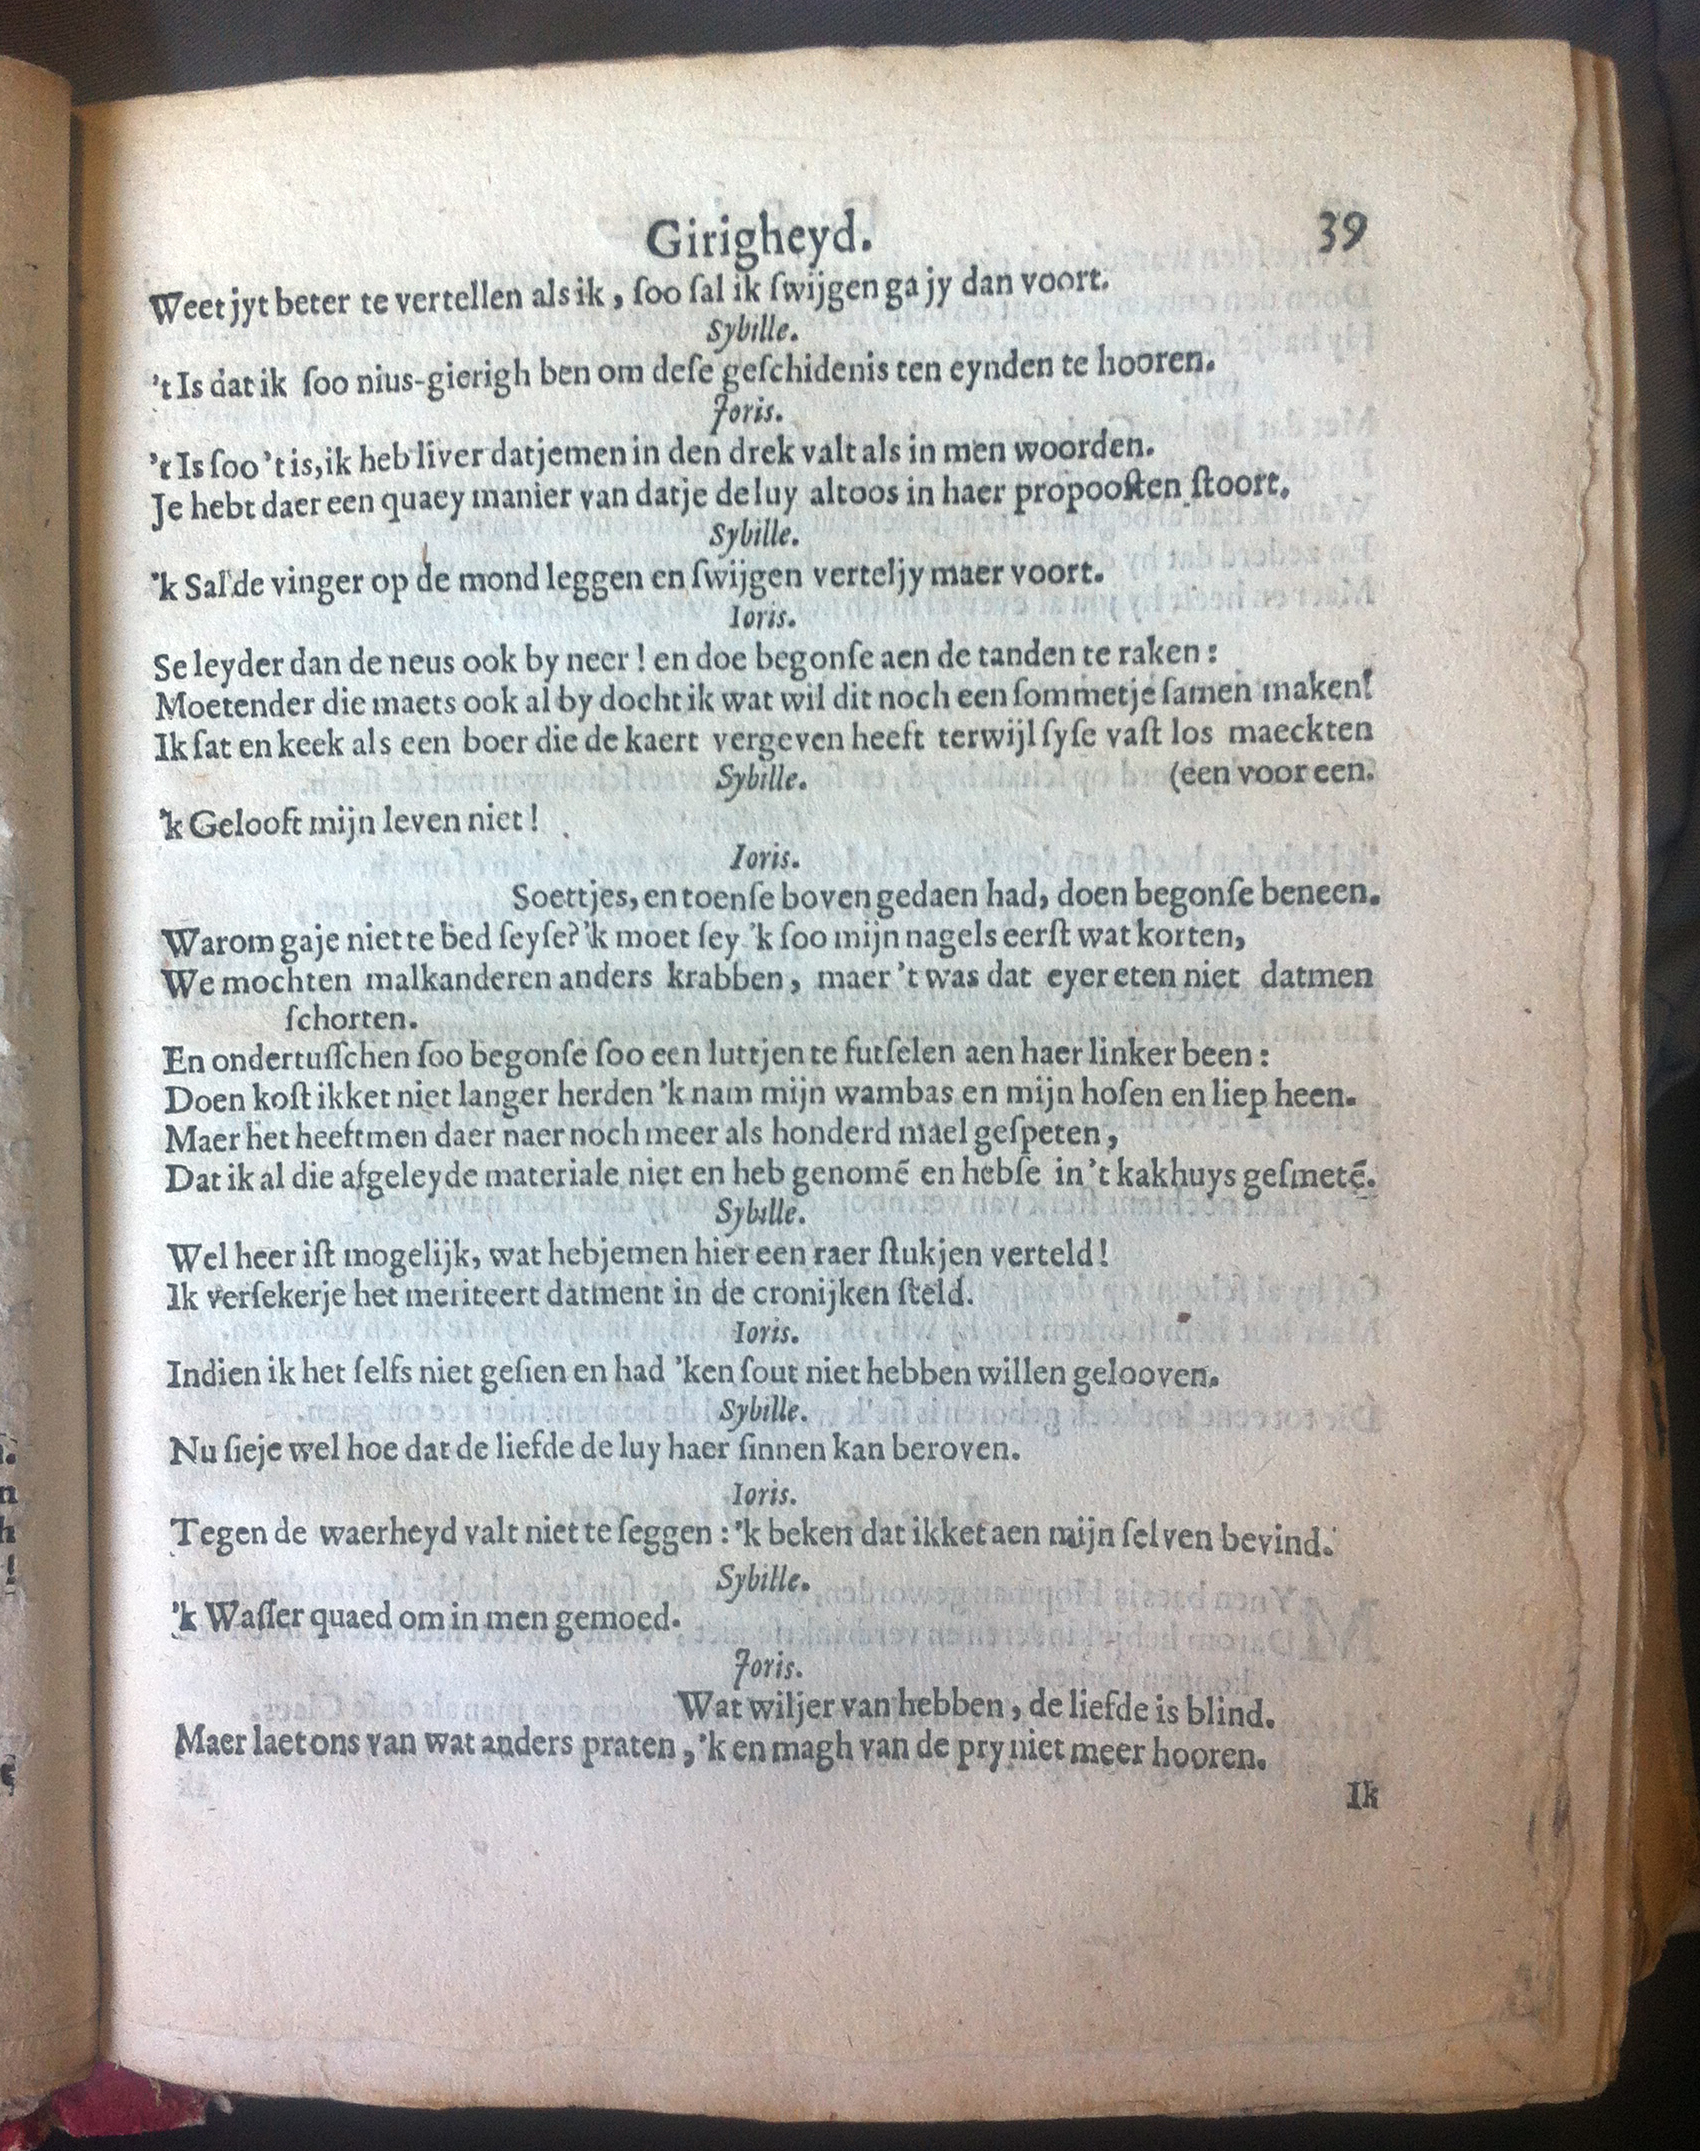 Girigheyd. 39
Weet jyt beter te vertellen als ik, ſoo ſal ik ſwijgen ga jy dan voort.
Sybille.
't Is dat ik ſoo nius-gierigh ben om deſe geſchidenis ten eynden te hooren.
Joris.
't Is ſoo 't is, ik heb liver datjemen in den drek valt als in men woorden.
Je hebt daer een quaey manier van datje de luy altoos in haer propooſten ſtoort.
Sybille.
'k Sal de vinger op de mond leggen en ſwijgen verteljy maer voort.
Ioris.
Se leyder dan de neus ook by neer! en doe begonſe aen de tanden te raken:
Moetender die maets ook al by docht ik wat wil dit noch een ſommetje ſamen maken!
Ik ſat en keek als een boer die de kaert vergeven heeft terwijl ſyſe vaſt los maeckten
Sybille. (een voor een.
'k Gelooft mijn leven niet!
Ioris.
Soettjes, en toenſe boven gedaen had, doen begonſe beneen.
Warom gaje niet te bed ſeyſe? 'k moet ſey 'k ſoo mijn nagels eerſt wat korten,
We mochten malkanderen anders krabben, maer 't was dat eyer eten niet datmen
ſchorten.
En ondertuſſchen ſoo begonſe ſoo een luttjen te futſelen aen haer linker been:
Doen koſt ikket niet langer herden 'k nam mijn wambas en mijn hoſen en liep heen.
Maer het heeftmen daer naer noch meer als honderd mael geſpeten,
Dat ik al die afgeleyde materiale niet en heb genomẽ en hebſe in 't kakhuys geſmetẽ.
Sybille.
Wel heer iſt mogelijk, wat hebjemen hier een raer ſtukjen verteld!
Ik verſekerje het meriteert datment in de cronijken ſteld.
Ioris.
Indien ik het ſelfs niet geſien en had 'ken ſout niet hebben willen gelooven.
Sybille.
Nu ſieje wel hoe dat de liefde de luy haer ſinnen kan beroven.
Ioris.
Tegen de waerheyd valt niet te ſeggen: 'k beken dat ikket aen mijn ſelven bevind.
Sybille.
'k Waſſer quaed om in men gemoed.
Joris.
Wat wiljer van hebben, de liefde is blind.
Maer laet ons van wat anders praten, 'k en magh van de pry niet meer hooren.
Ik